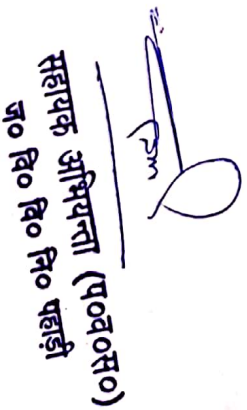 सहायक अभियन्ता (प०व०स०)
ज० वि० वि० नि० पहाड़ी